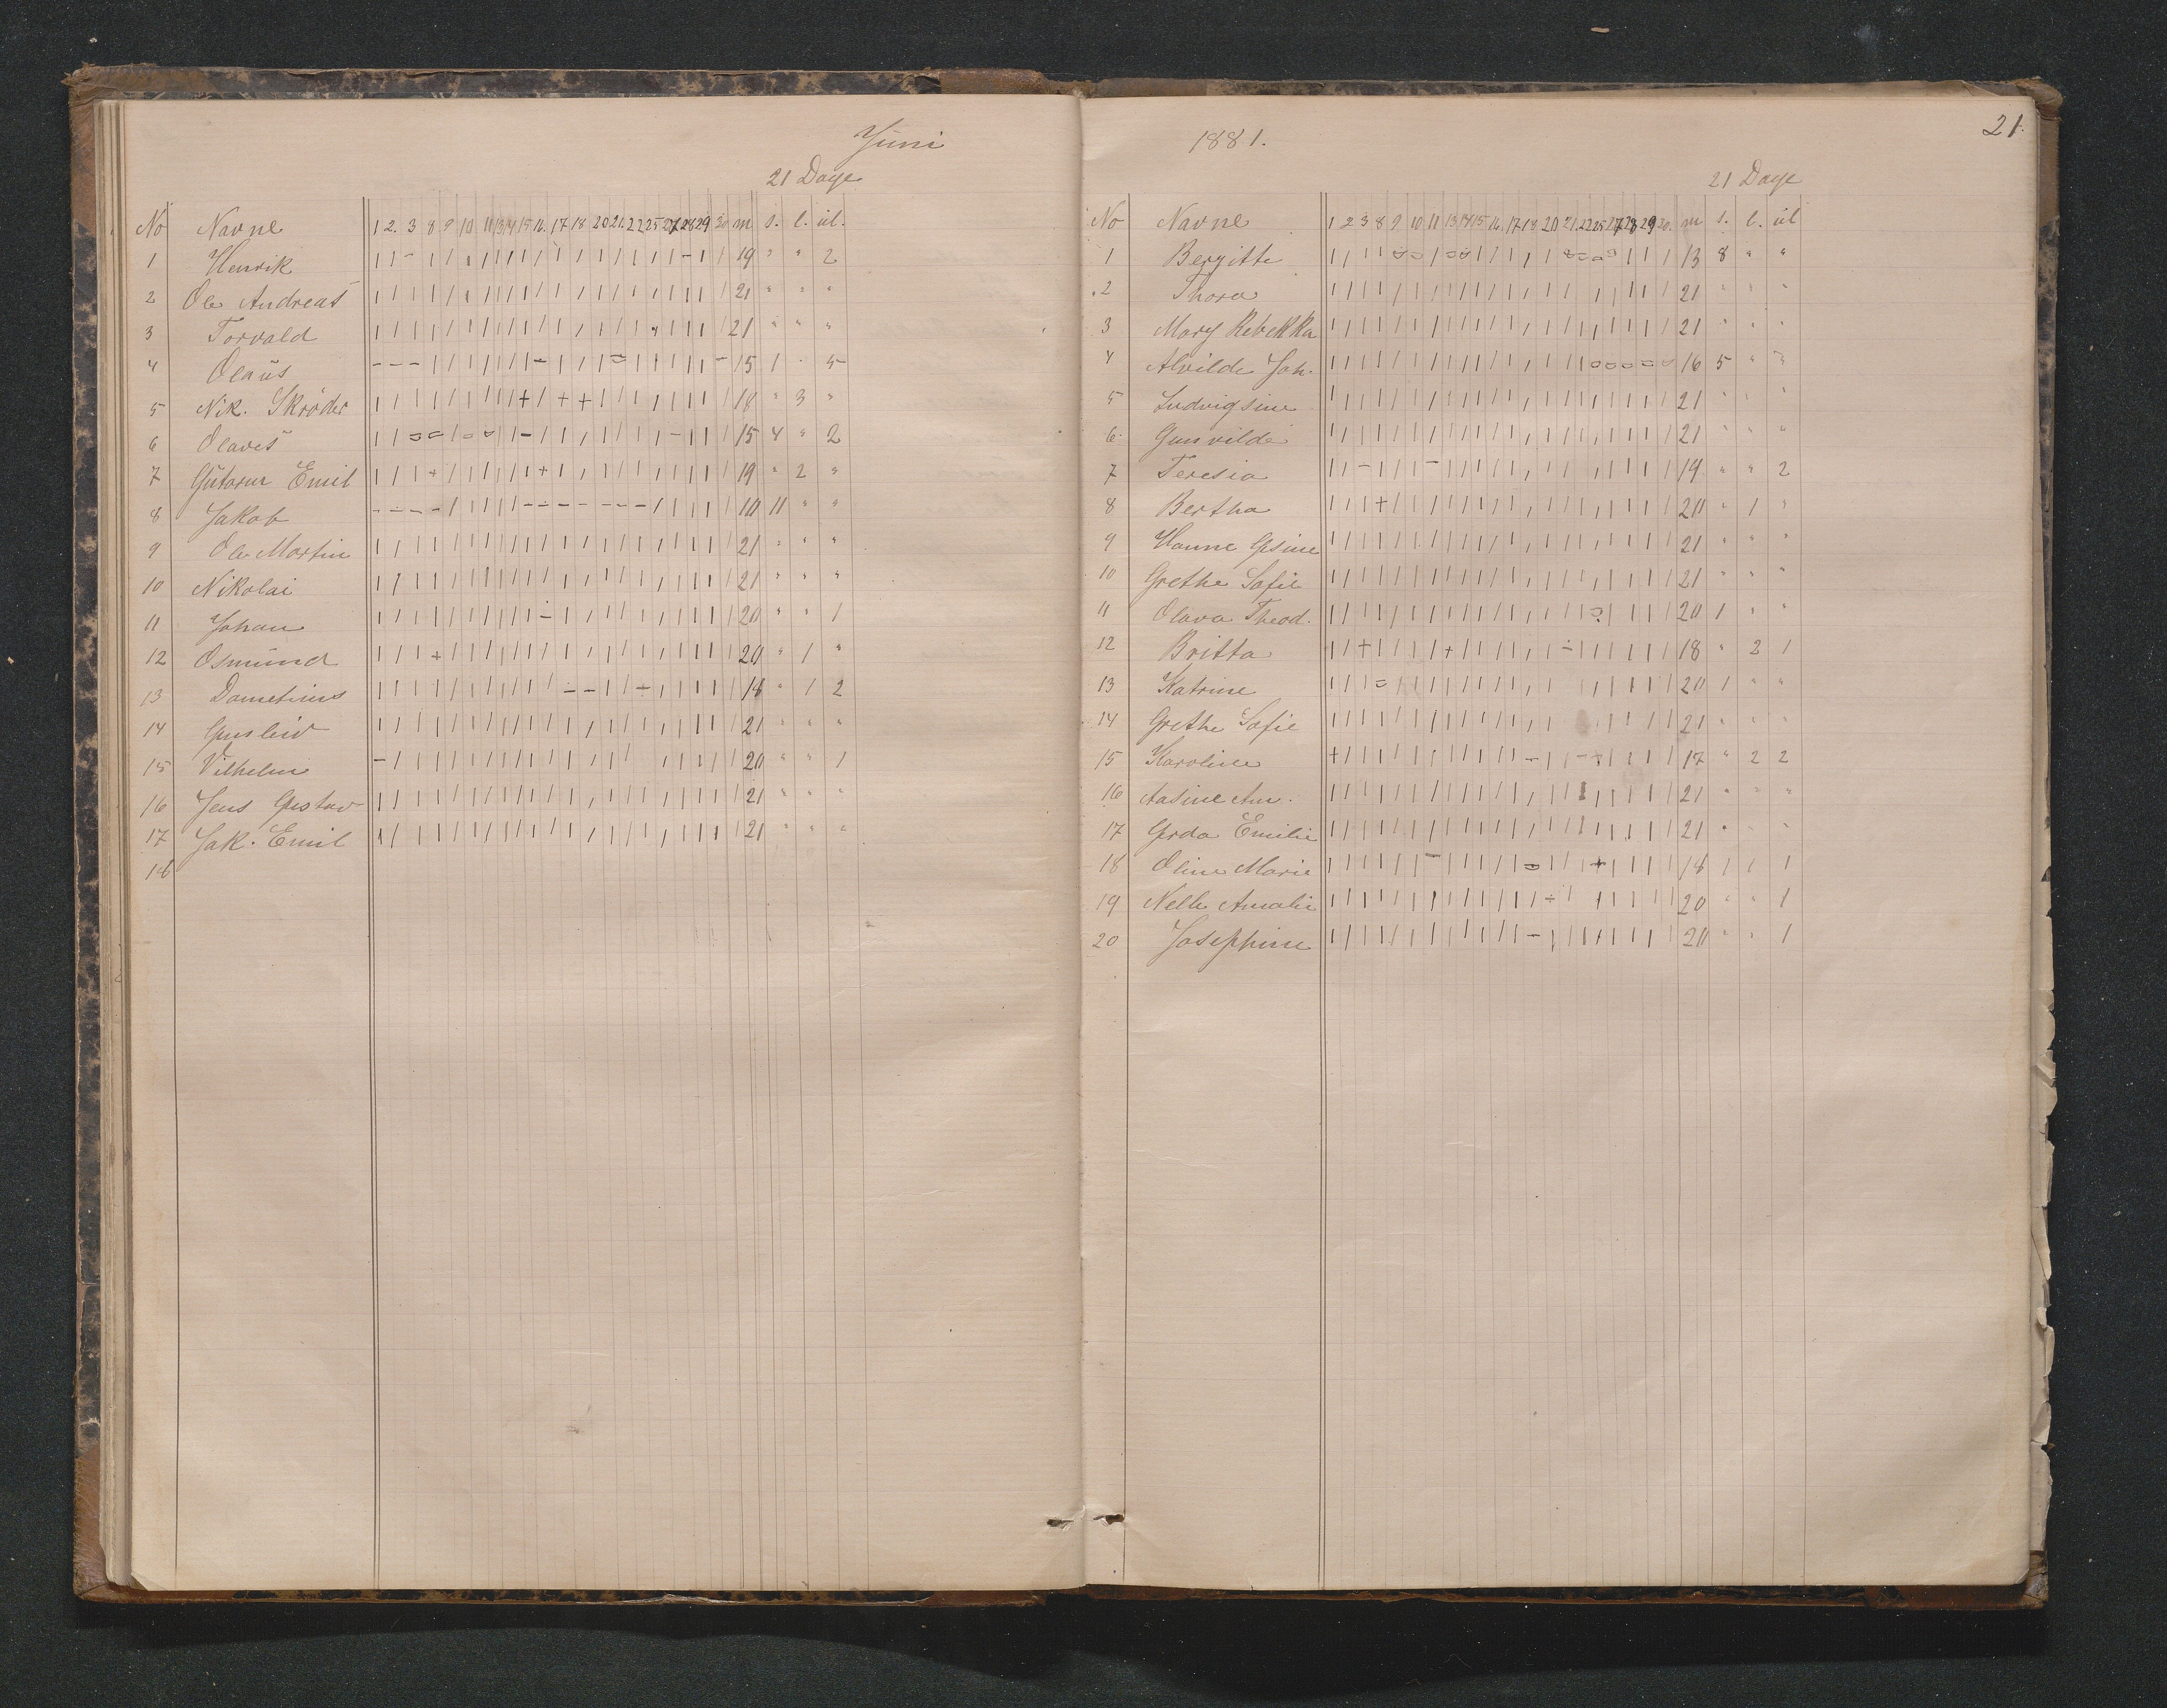 Juni
21 Dage
No Navne 1 2. 3 8 9 10 11 13 14 15 16. 17 18 20 21. 22 25 27 28 29 30 m s. l. ul.
1 Henrik | | - | | | | | | | | | | | | | | | - | | 19 " " 2
2 Ole Andreas | | | | | | | | | | | | | | | | | | | | | 21 " " "
3 Torvald | | | | | | | | | | | | | | | | | | | | | 21 " " "
4 Olaus 15 1 " 5
5 Nik. Skrøder 18 " 3 "
6 Olaves 15 4 " 2
7 Gutorm Emil 19 " 2 "
8 Jakob 10 11 " "
9 Ole Martin 21 " " "
10 Nikolai 21 " " "
11 Johan 20 " " 1
12 Osmund 20 " 1 "
13 Dometinus 18 " 1 2
14 Gunleiv 21 " " "
15 Vilhelm 20 " " 1
16 Jens Gustav 21 " " "
17 Jak. Emil 21 " " "
18
1881.
21.
21 Dage
No Navne 1 2 3 8 9 10 11 13 14 15 16. 17 18 20 21. 22 25 27 28 29 30. m s. l. ul
1 Bergitte 13 8 " "
2 Thora 21 " " "
3 Mary Rebekka 21 " " "
4 Alvilde Joh. 16 5 " "
5 Ludvigsine 21 " " "
6 Gunvilde 21 " " "
7 Teresia 19 " " 2
8 Bertha 20 " 1 "
9 Hanne Gsine 21 " " "
10 Grethe Sofie 21 " " "
11 Olava Theod. 20 1 " "
12 Britta 18 " 2 1
13 Katrine 20 1 " "
14 Grethe Sofie 21 " " "
15 Karoline 17 " 2 2
16 Aasine An. 21 " " "
17 Gerda Emilie 21 " " "
18 Oline Marie 18 1 1 1
19 Nelle Amalie 20 " " 1
20 Josephine 20 " " 1